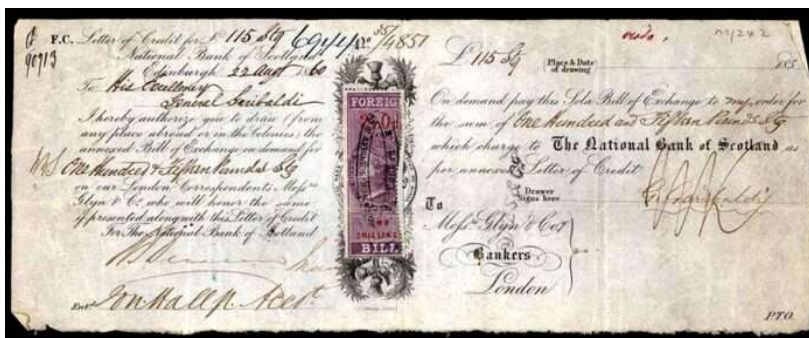 F.C. Letter of Credit for £ 115 Stg
90713
National Bank of Scotland
Edinburgh 22 Augt 1860
To His Excellency
General Garibaldi
I hereby authorize you to draw (from
any place abroad or in the Colonies) the
annexed Bill of Exchange on demand for
One Hundred & Fifteen Pounds Stg
on our London Correspondents, Messrs
Glyn & Co. who will honor the same
if presented along with this Letter of Credit
For The National Bank of Scotland
Entd Acct
35/4851
FOREIGN
SHILLINGS
BILL
£ 115 Stg
Place & Date
of drawing
185
On demand pay this Sola Bill of Exchange to my order for
the sum of One Hundred and Fifteen Pounds Stg
which charge to The National Bank of Scotland as
per annexed Letter of Credit
Drawer
Signs here
G. Garibaldi
To
Messrs Glyn & Co
Bankers
London
P.T.O.